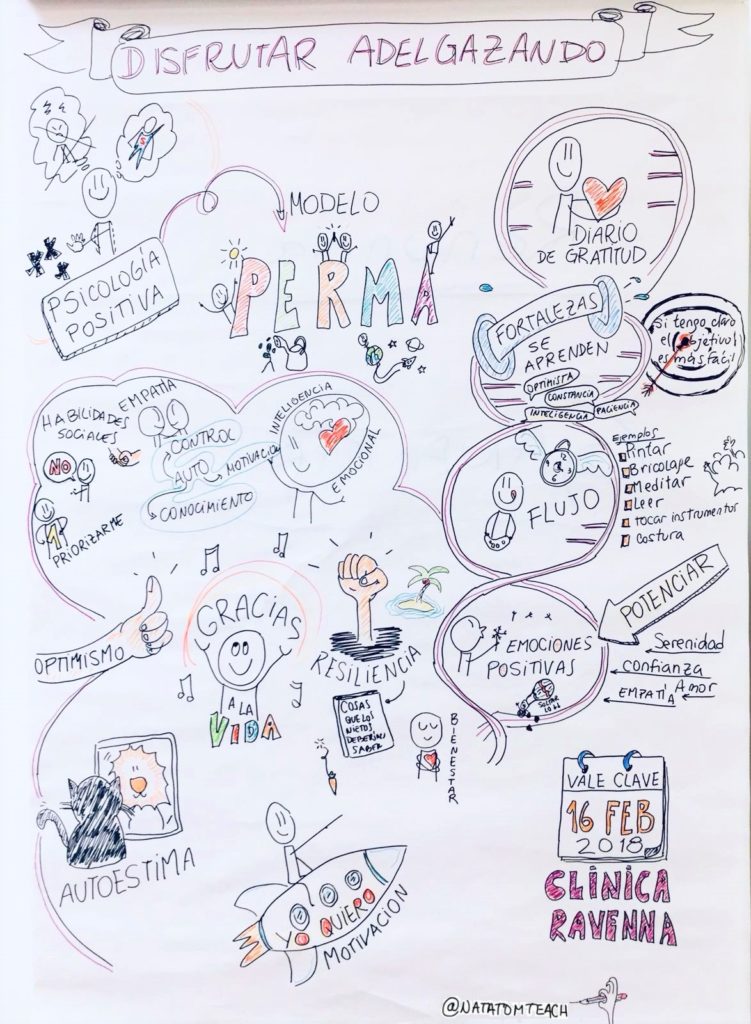 DISFRUTAR ADELGAZANDO
S
PSICOLOGÍA
POSITIVA
MODELO
PERMA
DIARIO
DE GRATITUD
FORTALEZAS
SE
APRENDEN
OPTIMISTA
CONSTANCIA
INTELIGENCIA
PACIENCIA
Si tengo claro
el objetivo!
es más fácil
HABILIDADES
SOCIALES
EMPATÍA
NO
1
PRIORIZARME
CONTROL
AUTO
MOTIVACION
CONOCIMIENTO
INTELIGENCIA
EMOCIONAL
FLUJO
Ejemplos
Pintar
Bricolage
Meditar
Leer
tocar instrumentos
costura
POTENCIAR
EMOCIONES
POSITIVAS
Serenidad
confianza
EMPATÍA
Amor
OPTIMISMO
GRACIAS
A LA
VIDA
RESILIENCIA
COSAS
QUE LOS
NIETOS
DEBERÍAN
SABER
BIENESTAR
AUTOESTIMA
YO QUIERO
MOTIVACION
VALE CLAVE
16 FEB
2018
CLINICA
RAVENNA
@NATATOMTEACH